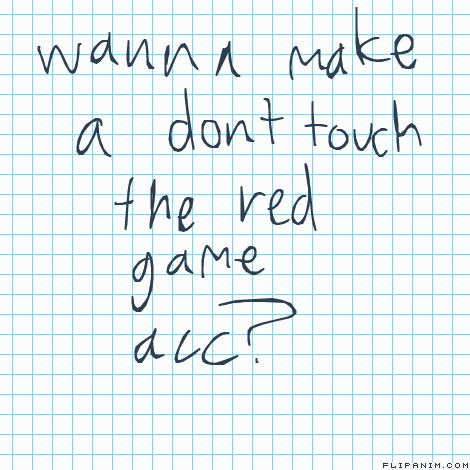 wanna make
a don't touch
the red
game
acc?
FLIPANIM.COM